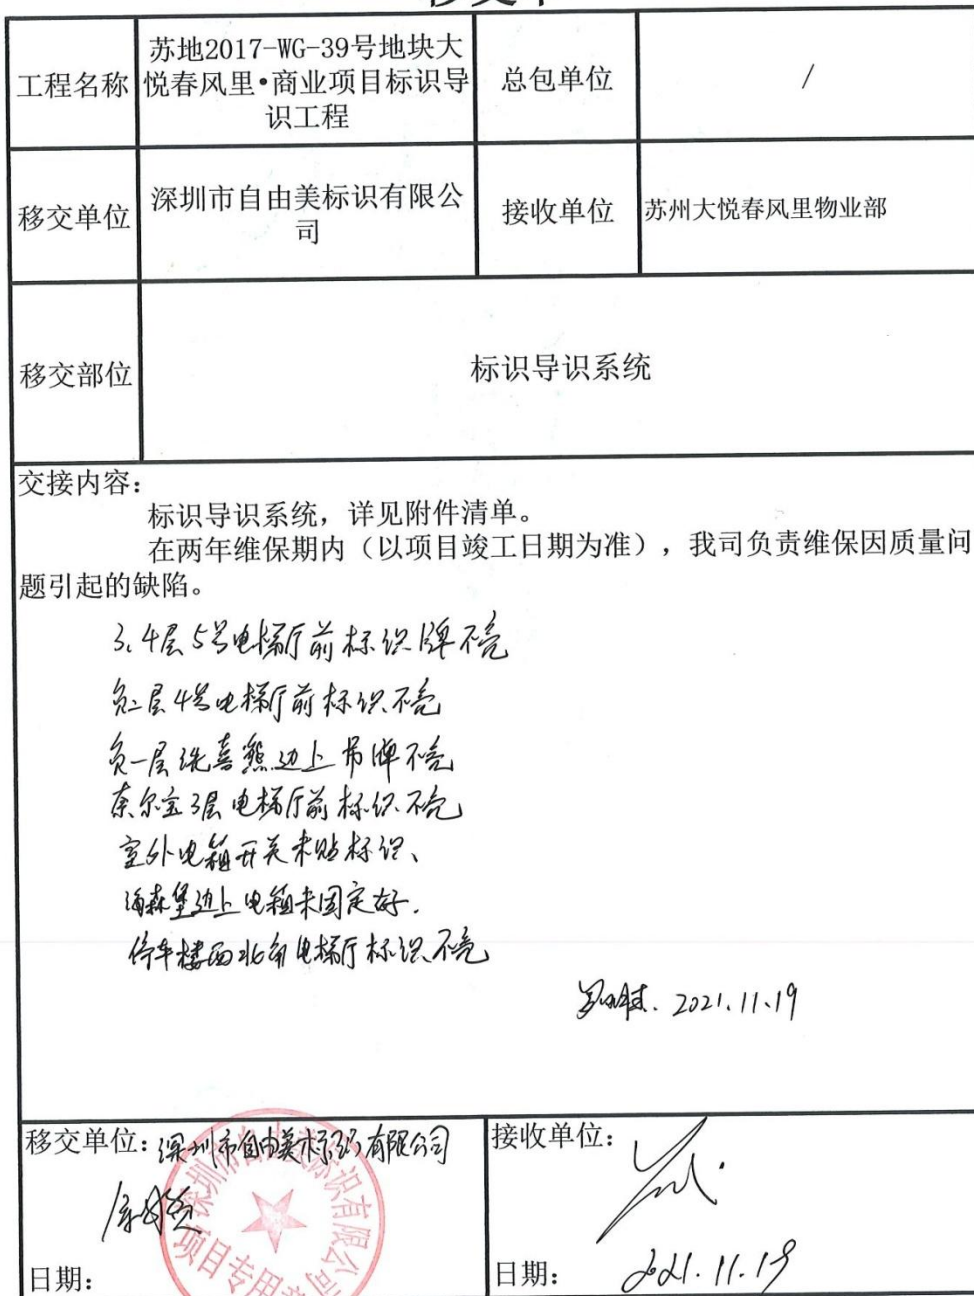 移交单
工程名称
苏地2017-WG-39号地块大
悦春风里•商业项目标识导
识工程
总包单位
/
移交单位
深圳市自由美标识有限公
司
接收单位
苏州大悦春风里物业部
移交部位
标识导识系统
交接内容：
标识导识系统，详见附件清单。
在两年维保期内（以项目竣工日期为准），我司负责维保因质量问
题引起的缺陷。
3、4层5号电梯厅前标识牌不亮
负二层4号电梯厅前标识不亮
负一层洗喜熊边上吊牌不亮
奈尔宝3层电梯厅前标识不亮
室外电箱开关未贴标识、
海森堡边上电箱未固定好.
停车楼西北角电梯厅标识不亮
2021.11.19
移交单位：深圳市自由美标识有限公司
接收单位：
深圳市自由美标识有限公司
项目专用章
日期：
日期： 2021.11.19